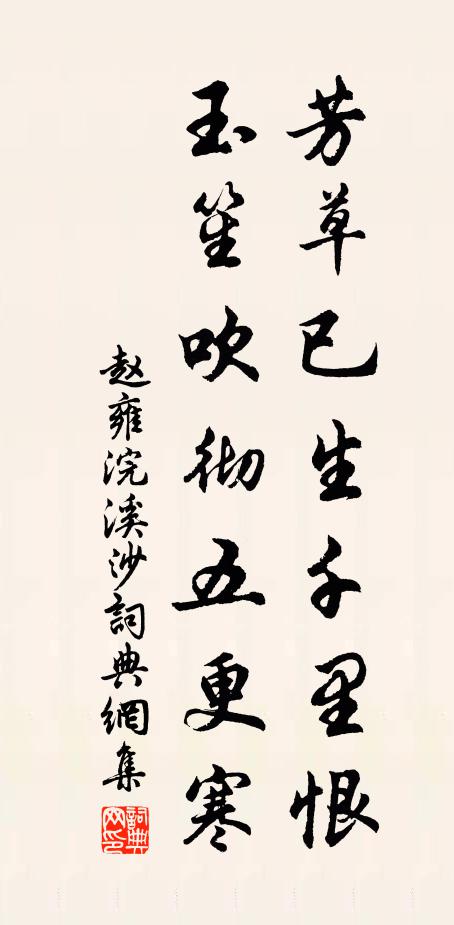 芳草已生千里恨
玉笙吹彻五更寒
赵雍浣溪沙詞典網集
詞典网印